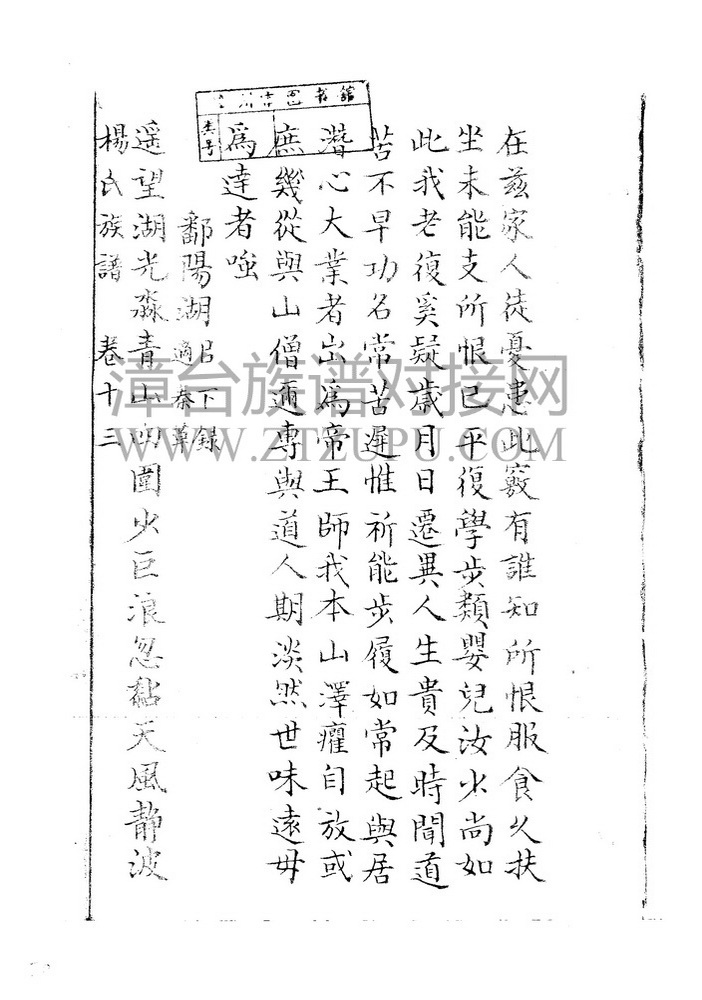 在茲家人徒憂患此竅有誰知所恨服食久扶
坐未能支所恨已平復學步類嬰兒汝少尚如
此我老復奚疑歲月日遷異人生貴及時聞道
苦不早功名常苦遲惟祈能步履如常起與居
潛心大業者出爲帝王師我本山澤癯自放或
庶幾從與山僧遁專與道人期淡然世味遠毋
爲達者嗤
鄱陽湖
呂下錄
適秦草
遥望湖光淼青山四圍火巨浪忽黏天風靜波
楊氏族譜 卷十三
書館
漳台族谱对接网
WWW.ZTZUPU.COM